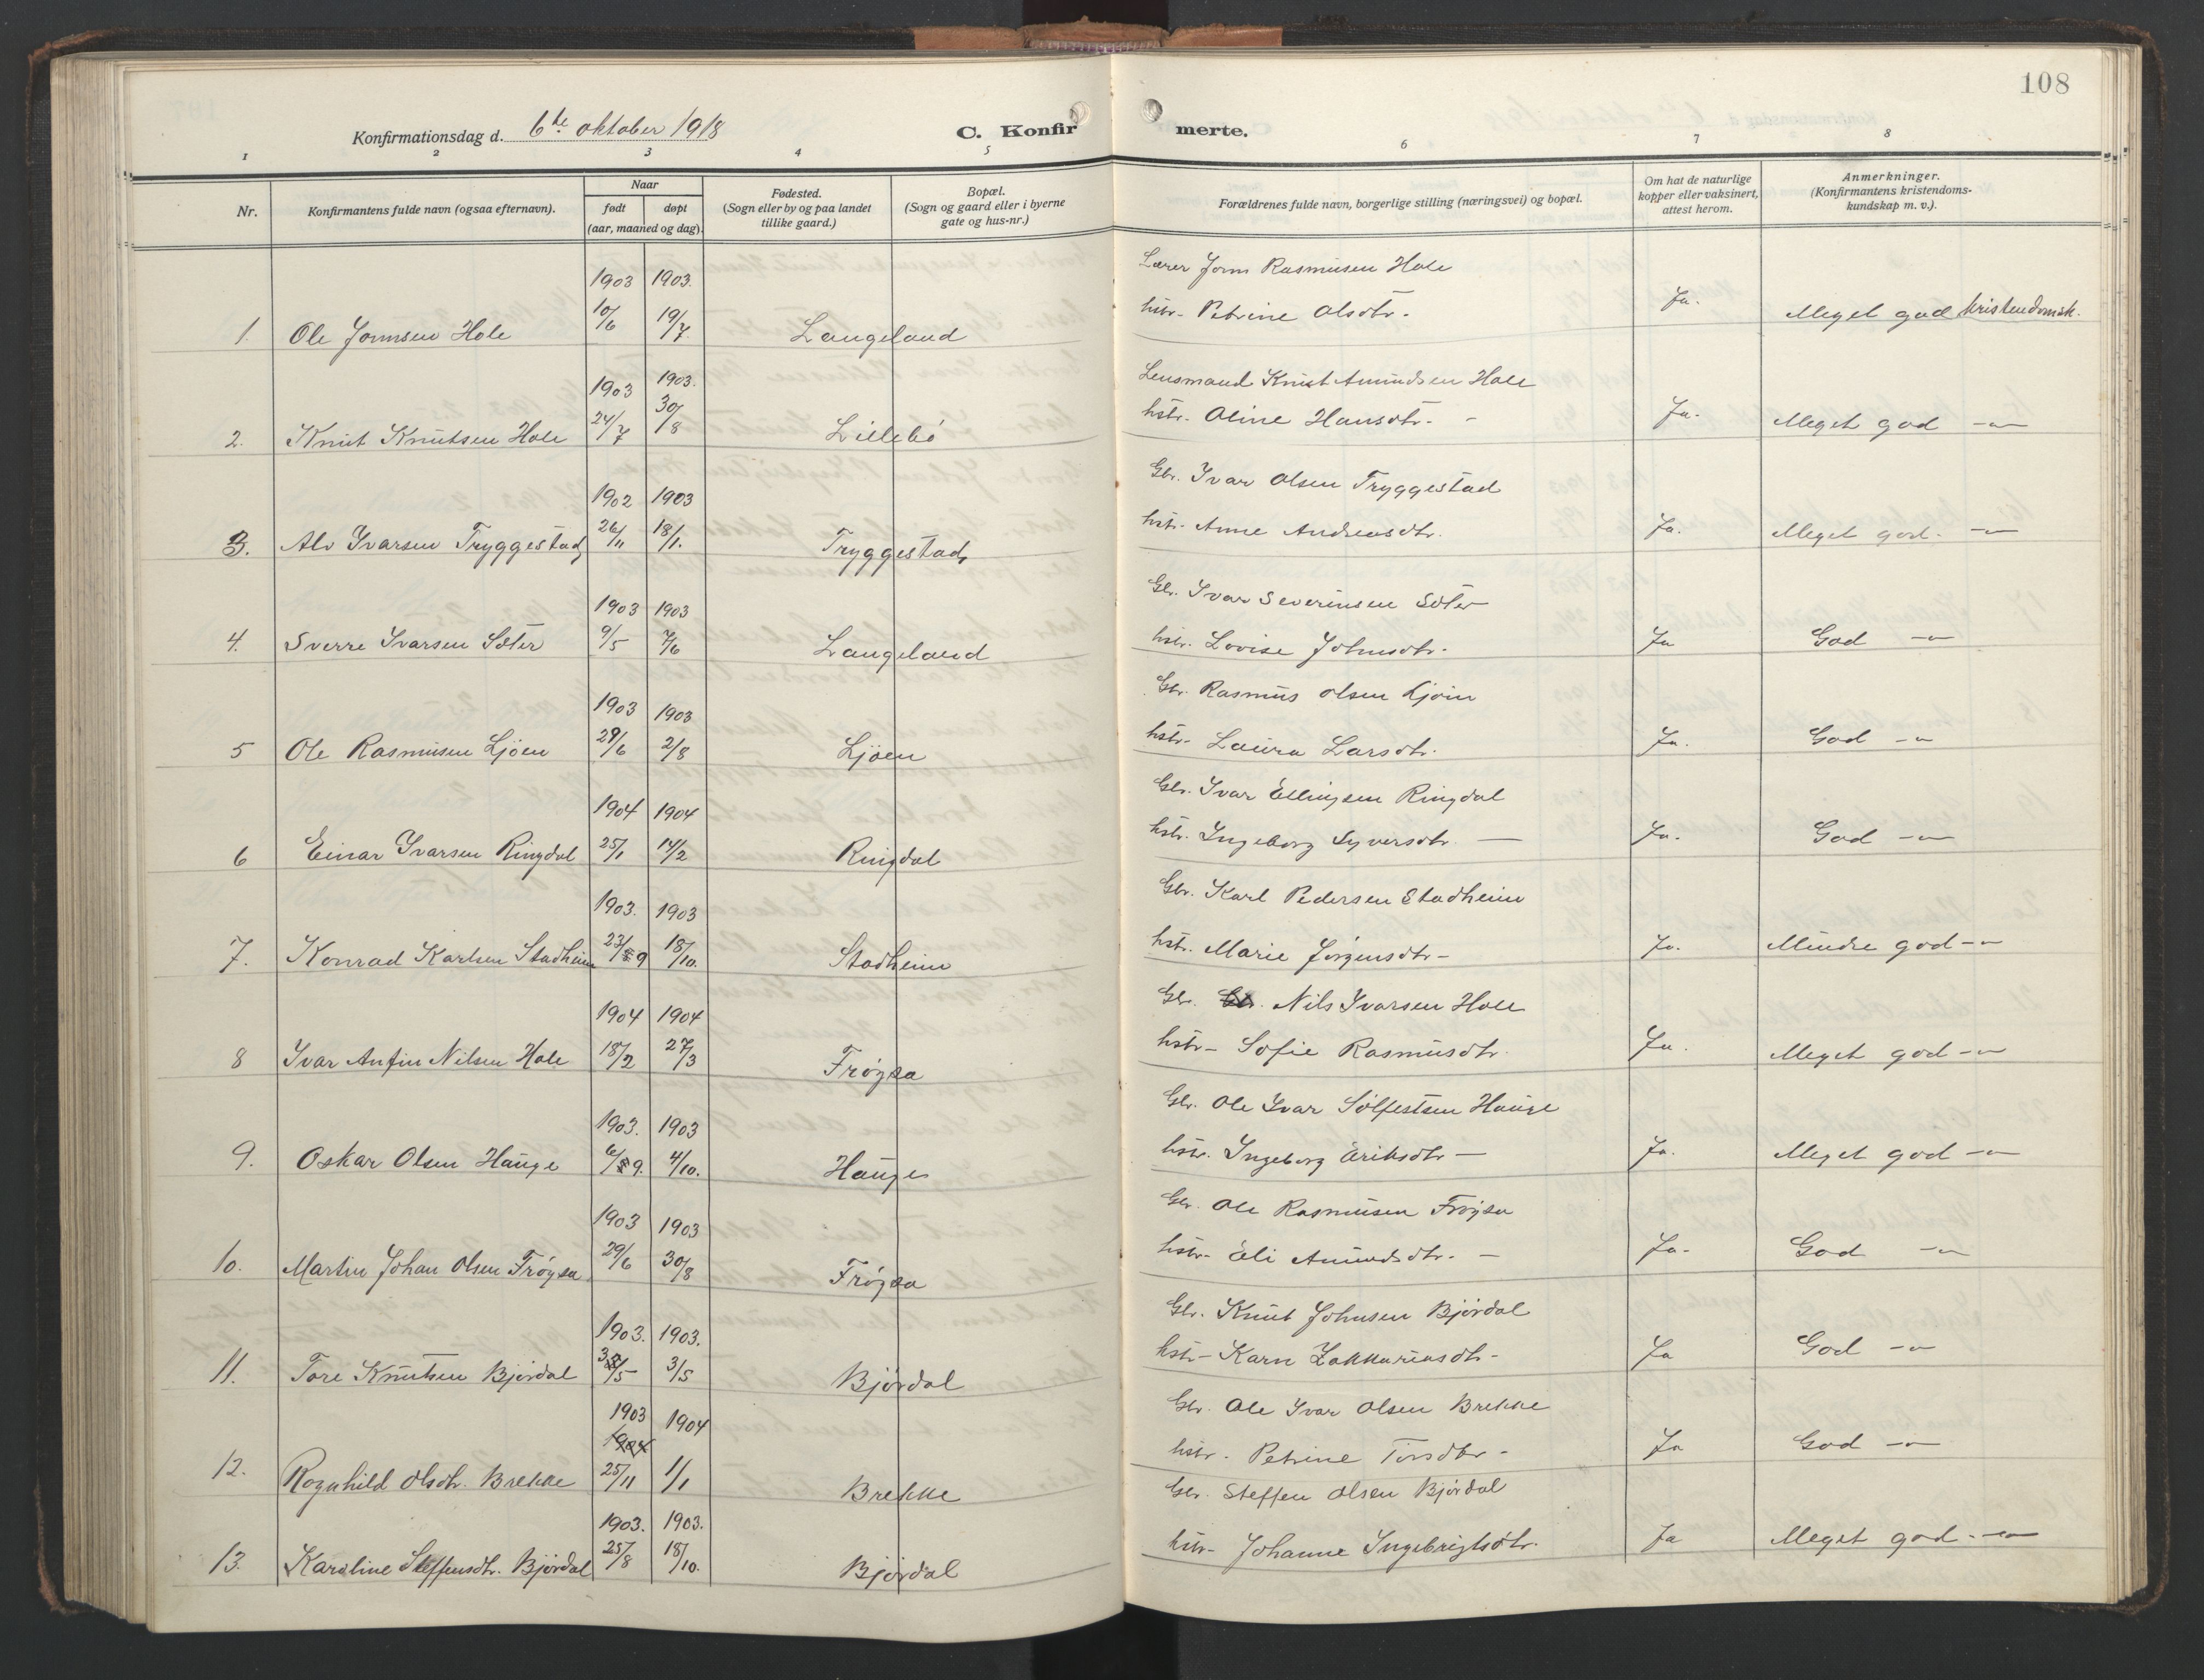 108
Konfirmationsdag d. 6te oktober 1918
C. Konfir merte.
1 2 3 4 5 6 7 8
Nr.
Konfirmantens fulde navn (ogsaa efternavn).
Naar
født
døpt
(aar, maaned og dag).
Fødested.
(Sogn eller by og paa landet
tillike gaard.)
Bopæl.
(Sogn og gaard eller i byerne
gate og hus-nr.)
Forældrenes fulde navn, borgerlige stilling (næringsvei) og bopæl.
Om hat de naturlige
kopper eller vaksinert,
attest herom.
Anmerkninger.
(Konfirmantens kristendoms-
kundskap m. v.).
1903 1903. Lærer Jorm Rasmusen Hole
1. Ole Jormsen Hole 10/6 19/7 Langeland hstr. Petrine Olsdtr. Ja. Meget god kristendomsk.
1903 1903. Lensmand Knut Amundsen Hole
2. Knut Knutsen Hole 24/7 30/8 Lillebö hstr. Oline Hansdtr. - Ja. Meget god -"-
1902 1903 Gbr. Ivar Olsen Tryggestad
3. Alv Ivarsen Tryggestad 26/11 18/1. Tryggestad hstr. Anne Andreasdtr. Ja. Meget god. -"-
1903 1903 Gbr. Ivar Severinsen Söter
4. Sverre Ivarsen Söter 9/5 7/6 Langeland hstr. Lovise Johnsdtr. Ja God -"-
1903 1903 Gbr. Rasmus Olsen Ljöen
5 Ole Rasmusen Ljöen 29/6 2/8 Ljöen hstr. Laura Larsdtr. Ja. God -"-
1904 1904 Gbr. Ivar Ellingsen Ringdal
6 Einar Ivarsen Ringdal 25/1 14/2 Ringdal hstr. Ingeborg Syversdtr. - Ja. God -"-
1903. 1903 Gbr. Karl Pedersen Stadheim
7. Konrad Karlsen Stadheim 23/9 18/10. Stadheim hstr. Marie Jörgensdtr - Ja. Mindre god -"-
1904 1904 Gbr. Gbr. Nils Ivarsen Hole
8 Ivar Anfin Nilsen Hole 18/2 27/3 Fröysa hstr - Sofie Rasmusdtr. Ja. Meget god -"-
1903. 1903 Gbr. Ole Ivar Sölfestsen Hauge
9. Oskar Olsen Hauge 6/9. 4/10. Hauge hstr. Ingeborg Eriksdtr - Ja. Meget god -"-
1903 1903 Gbr. Ole Rasmusen Fröysa
10. Martin Johan Olsen Fröysa 29/6 30/8 Fröysa hstr - Eli Amundsdtr. - Ja. God -"-
1903. 1903. Gbr. Knut Johnsen Björdal
11. Tore Knutsen Björdal 3/5 3/5 Björdal hstr - Karn Zakkariasdtr - Ja God -"-
1903 1904 Gbr. Ole Ivar Olsen Brekke
1904
12. Ragnhild Olsdtr. Brekke 25/11 1/1 Brekke hstr. Petrine Torsdtr - Ja God -"-
1903. 1903. Gbr. Steffen Olsen Björdal
13. Karoline Steffensdtr. Björdal 25/8 18/10. Björdal hstr - Johanne Ingebrigtsdtr. Ja Meget god. -"-